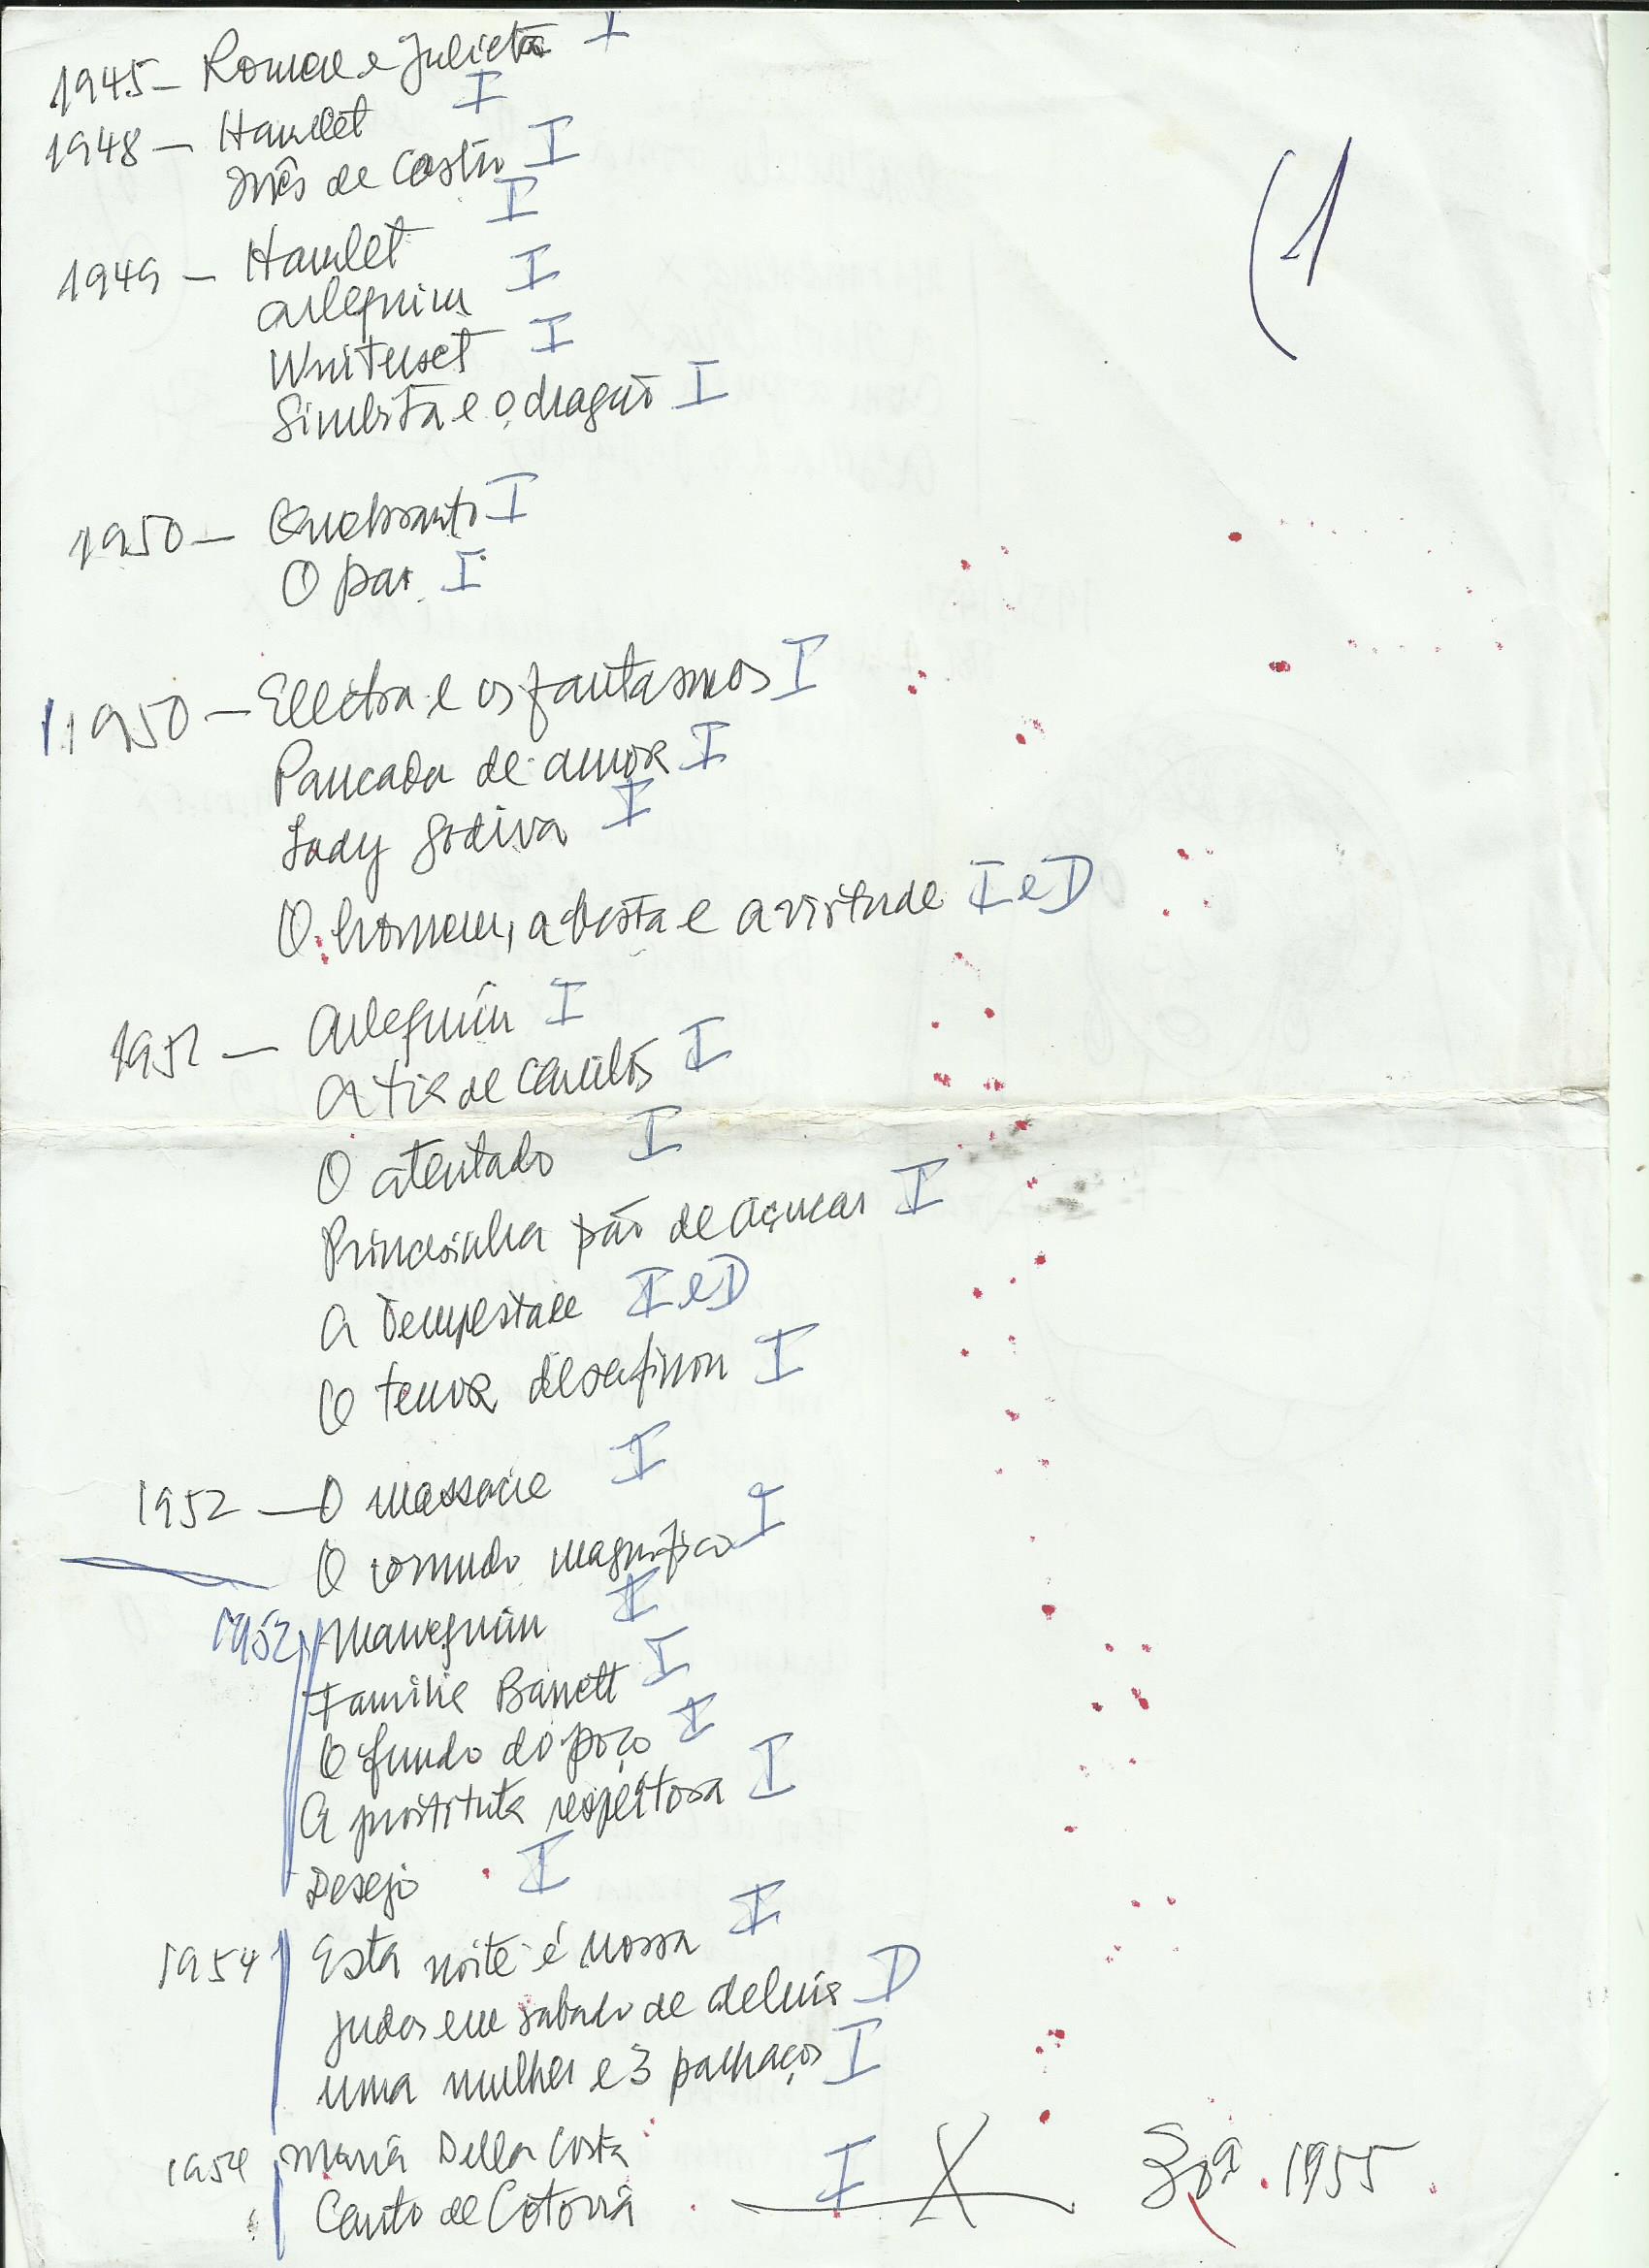 1945 - Romeu e Julieta I
1948 - Hamlet I
Inês de Castro I
1949 - Hamlet I
Arlequim I
Simbita e o dragão I
1950 - Quebranto I
O pai I
1950 - Electra e os fantasmas I
Pancada de amor I
Lady Godiva I
O homem, a besta e a virtude I e D
1951 - Arlequim I
A tia de Carlitos I
O atentado I
Princesinha pão de açucar I
A Tempestade I e D
O tenor desafinou I
1952 - O massacre I
O cornudo magnífico I
1952 Manequim I
Família Barrett I
O fundo do poço I
A prostituta respeitosa I
Desejo I
1954 Esta noite é nossa I
Judas em sabado de aleluia D
uma mulher e 3 palhaços I
1954 Maria Della Costa
Canto da Cotovia I X 1955
(1